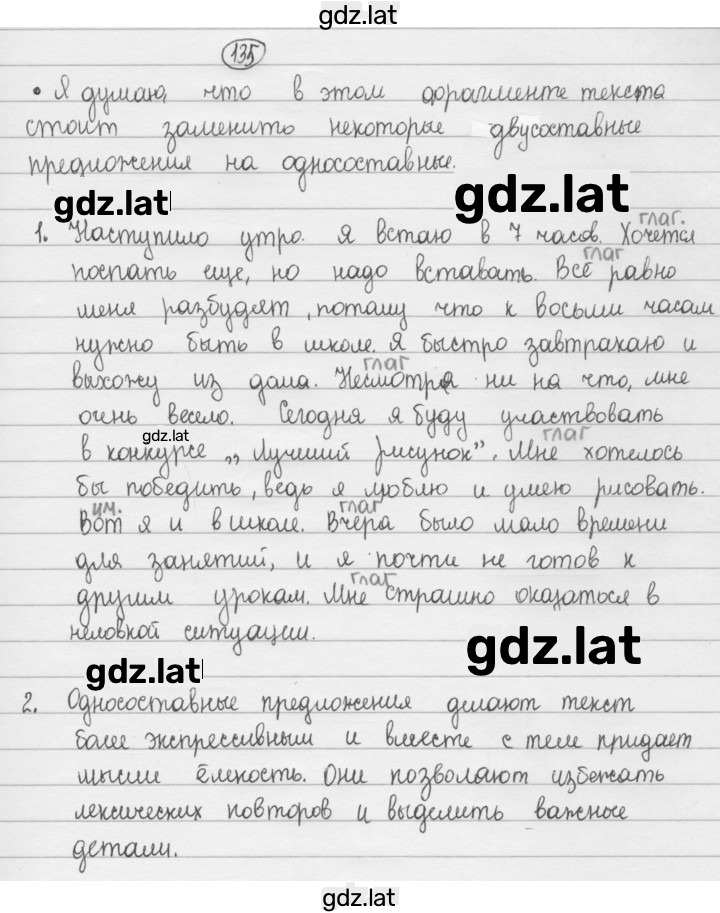 gdz.lat
135
• Я думаю, что в этом фрагменте текста
стоит заменить некоторые двусоставные
предложения на односоставные.
gdz.lat gdz.lat
глаг.
1. Наступило утро. Я встаю в 7 часов. Хочется
глаг
поспать еще, но надо вставать. Всё равно
меня разбудят, потому что к восьми часам
нужно быть в школе. Я быстро завтракаю и
глаг
выхожу из дома. Несмотря ни на что, мне
очень весело. Сегодня я буду участвовать
gdz.lat глаг
в конкурсе „Лучший рисунок". Мне хотелось
бы победить, ведь я люблю и умею рисовать.
им. глаг
Вот я и в школе. Вчера было мало времени
для занятий, и я почти не готов к
глаг
другим урокам. Мне страшно оказаться в
неловкой ситуации.
gdz.lat
gdz.lat
2. Односоставные предложения делают текст
более экспрессивным и вместе с тем придает
мысли ёмкость. Они позволяют избежать
лексических повторов и выделить важные
детали.
gdz.lat